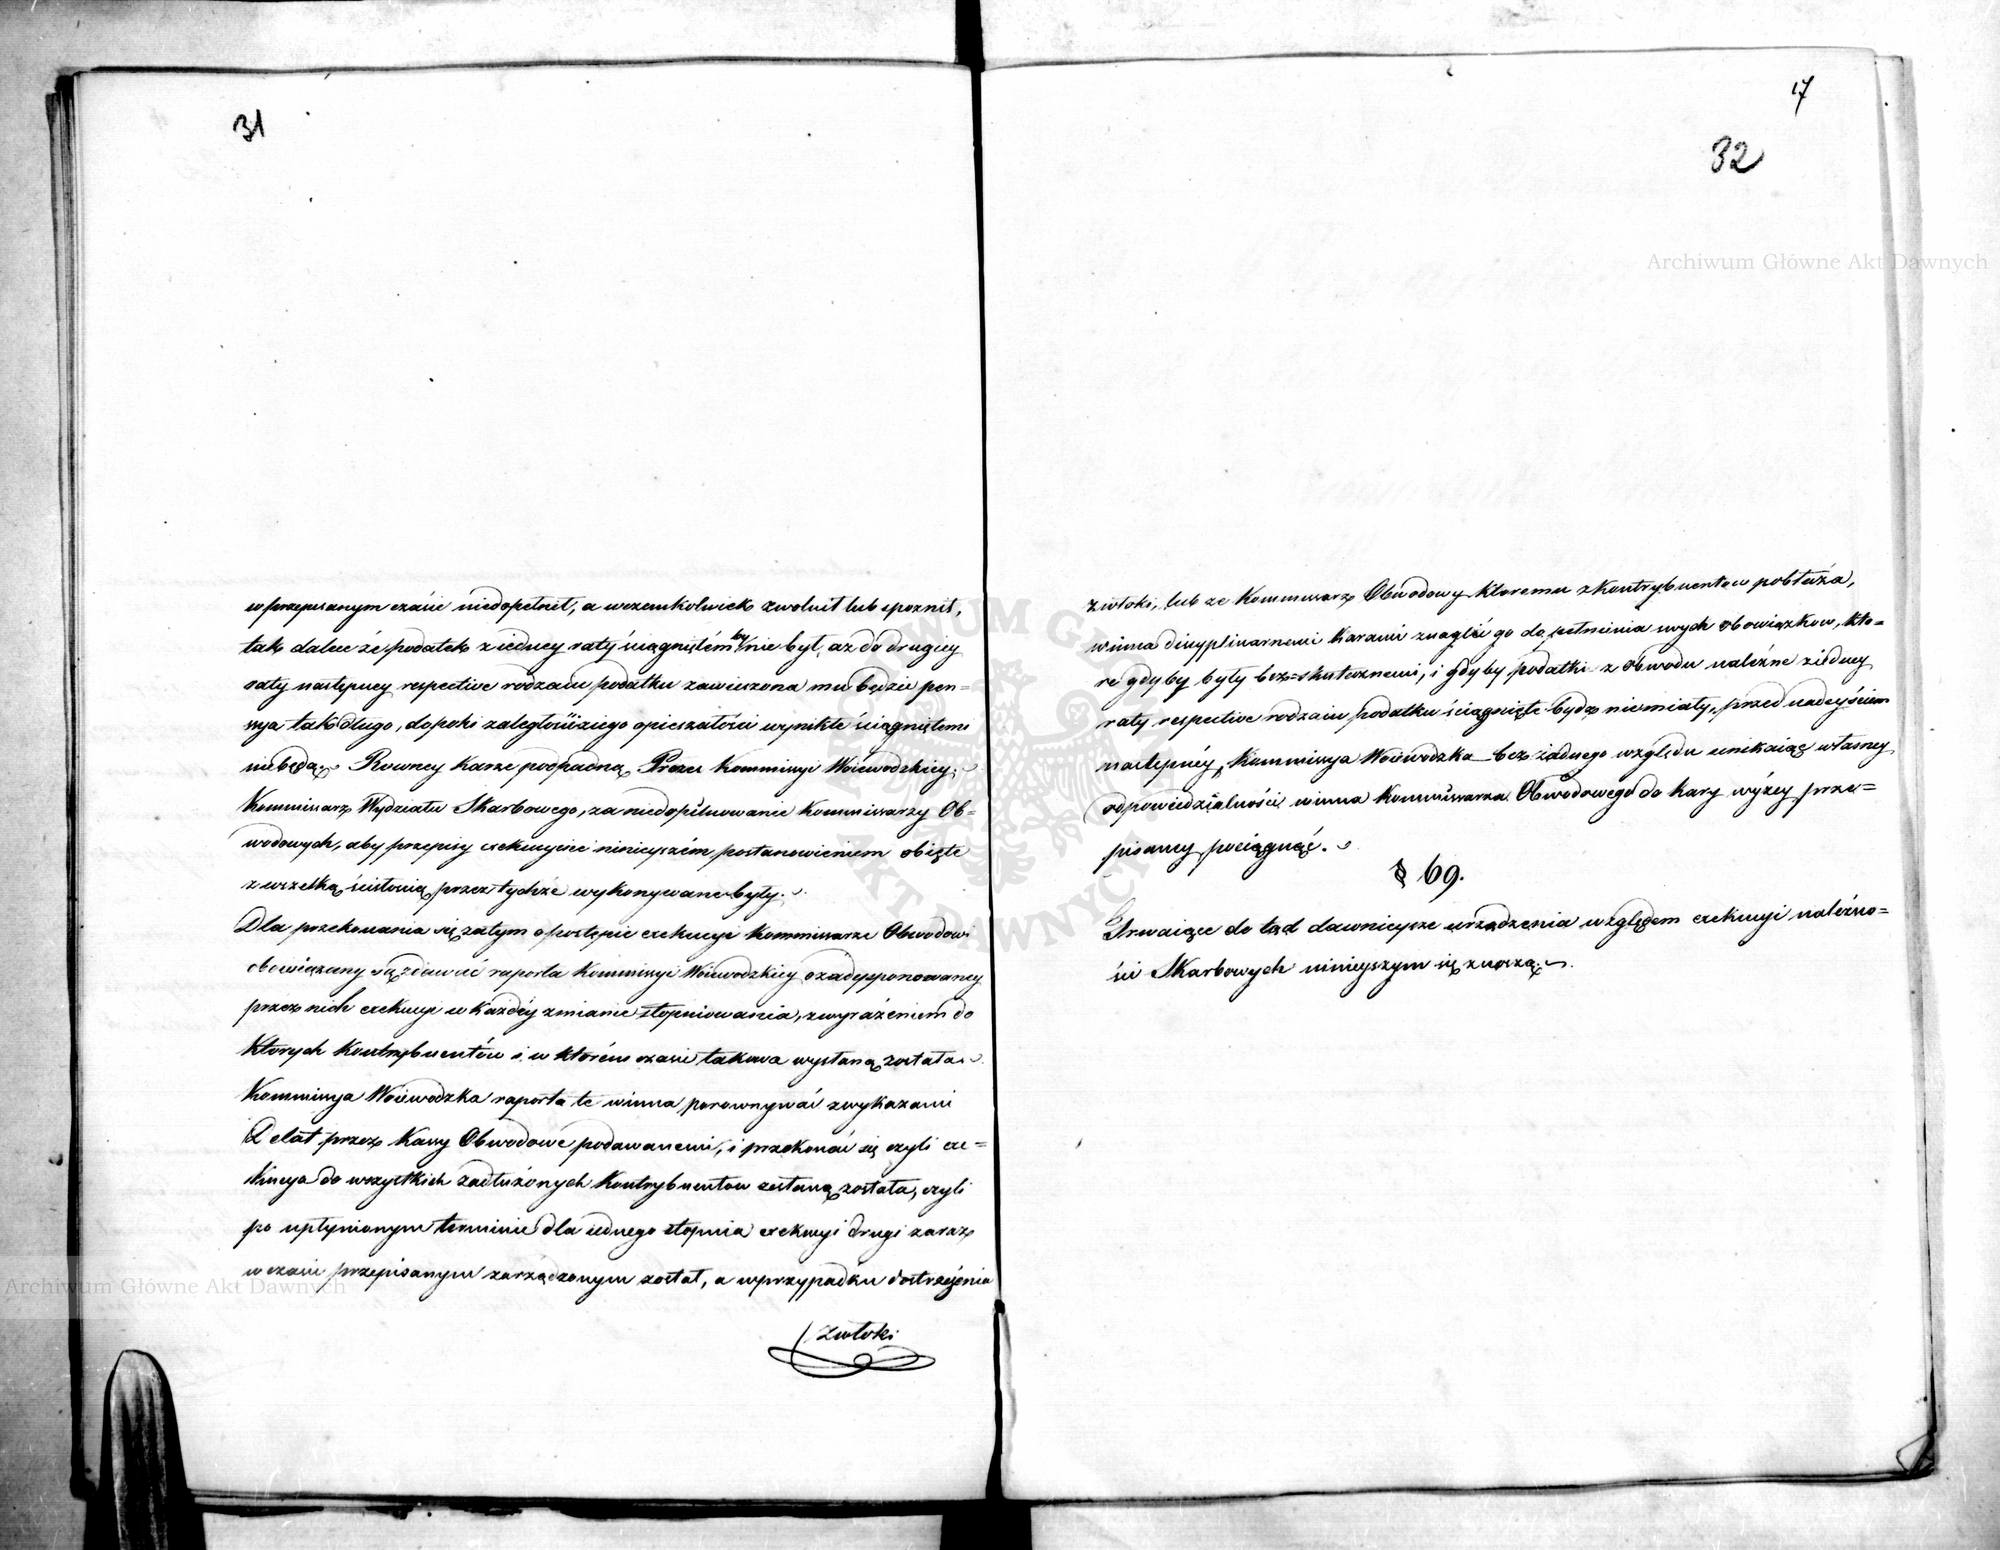 31
w przepisanym czasie niedopełnił, a w czemkolwiek zwolnił lub spoznił,
tak dalece że podatek z iedney raty ściągniętém by nie był, aż do drugiey
raty następney respective rodzaiu podatku zawieszona mu będzie pen=
sya tak długo, dopoki zaległości z iego opieszałości wynikłe ściągniętemi
nie będą. Rowney karze podpadną Prezes Kommissyi Woiewodzkiey,
Kommissarz Wydziału Skarbowego, za niedopilnowanie Kommissarzy Ob=
wodowych, aby przepisy exekucyine ninieyszém postanowieniem obięte
z wszelką ścisłością przez tychże wykonywane były.
Dla przekonania się zatym o postępie exekucyi Kommissarze Obwodowi
obowiązany są zdawać raporta Kommissyi Woiewodzkiey o zadysponowaney
przez nich exekucyi w każdéy zmianie stopniowania, z wyrażeniem do
ktorych Kontrybuentów i w ktorém czasie takowa wysłaną została.
Kommissya Woiewodzka raporta te winna porownywać z wykazami
Delat przez Kassy Obwodowe podawanemi, i przekonać się czyli exe=
kucya do wszystkich zadłużonych Kontrybuentow zesłaną została, czyli
po upłynionym terminie dla iednego stopnia exekucyi drugi zaraz
w czasie przepisanym zarządzonym został, a w przypadku dostrzeżenia
zwłoki
17
32
zwłoki, lub ze Kommissarz Obwodowy ktoremu z Kontrybuentow pobłaża,
winna discyplinarnemi karami znaglić go do pełnienia swych obowiązkow, kto=
re gdyby były bez=skutecznemi, i gdyby podatki z obwodu należne z iedney
raty respective rodzaiu podatku ściągnięte bydź niemiały, przed nadeyściem
następnéy, Kommissya Woiewodzka bez żadnego względu unikaiąc własney
odpowiedzialności winna Kommissarza Obwodowego do kary wyżey prze=
pisaney pociągnąć.
§ 69.
Trwaiące do tąd dawnieysze urządzenia względem exekucyi należno=
ści Skarbowych ninieyszym się znoszą.
Archiwum Główne Akt Dawnych
Archiwum Główne Akt Dawnych
ARCHIWUM GŁÓWNE AKT DAWNYCH